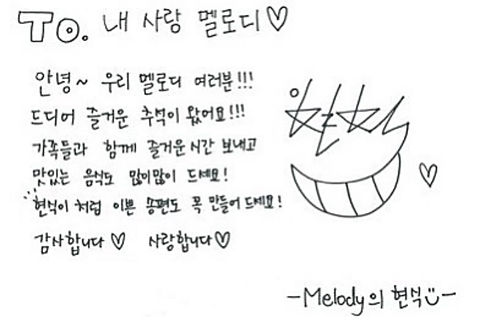 To. 내 사랑 멜로디♡
안녕~ 우리 멜로디 여러분!!!
드디어 즐거운 추석이 왔어요!!!
가족들과 함께 즐거운 시간 보내고
맛있는 음식도 많이많이 드세요!
현식이 처럼 이쁜 송편도 꼭 만들어 드세요!
감사합니다♡ 사랑합니다♡
-Melody의 현식-